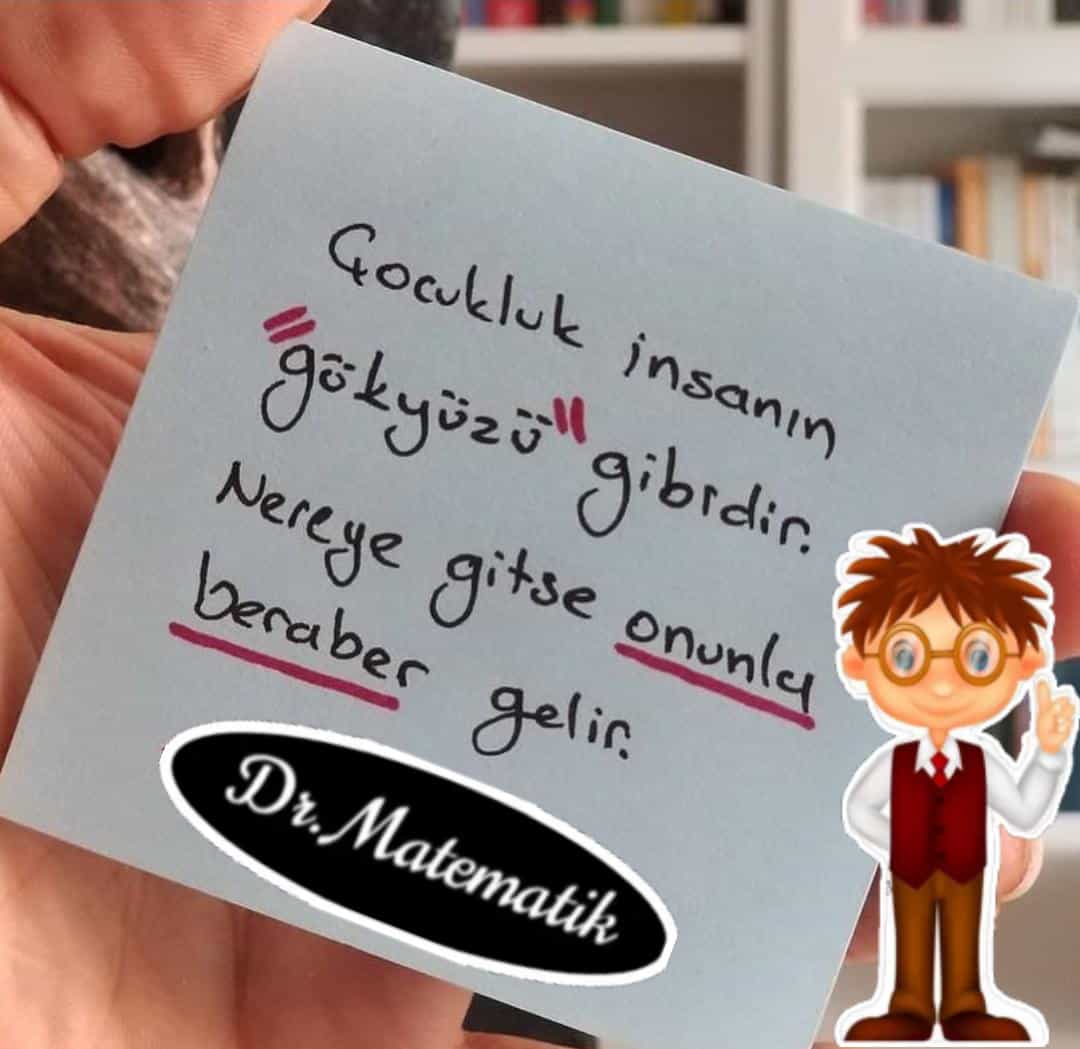 Çocukluk insanın
"gökyüzü" gibidir.
Nereye gitse onunla
beraber gelir.
Dr. Matematik